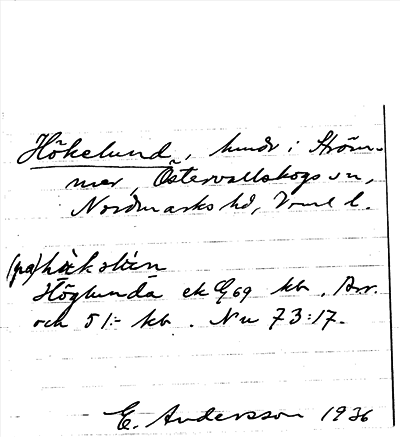 Hökelund, hmdr i Ström-
mer, Östervallskogs sn,
Nordmarks hd, Vrml l.
(på) håkolún
Höglunda ek G 69 kb, Arr.
och 51:- kb. Nu 73:17.
E. Andersson 1936